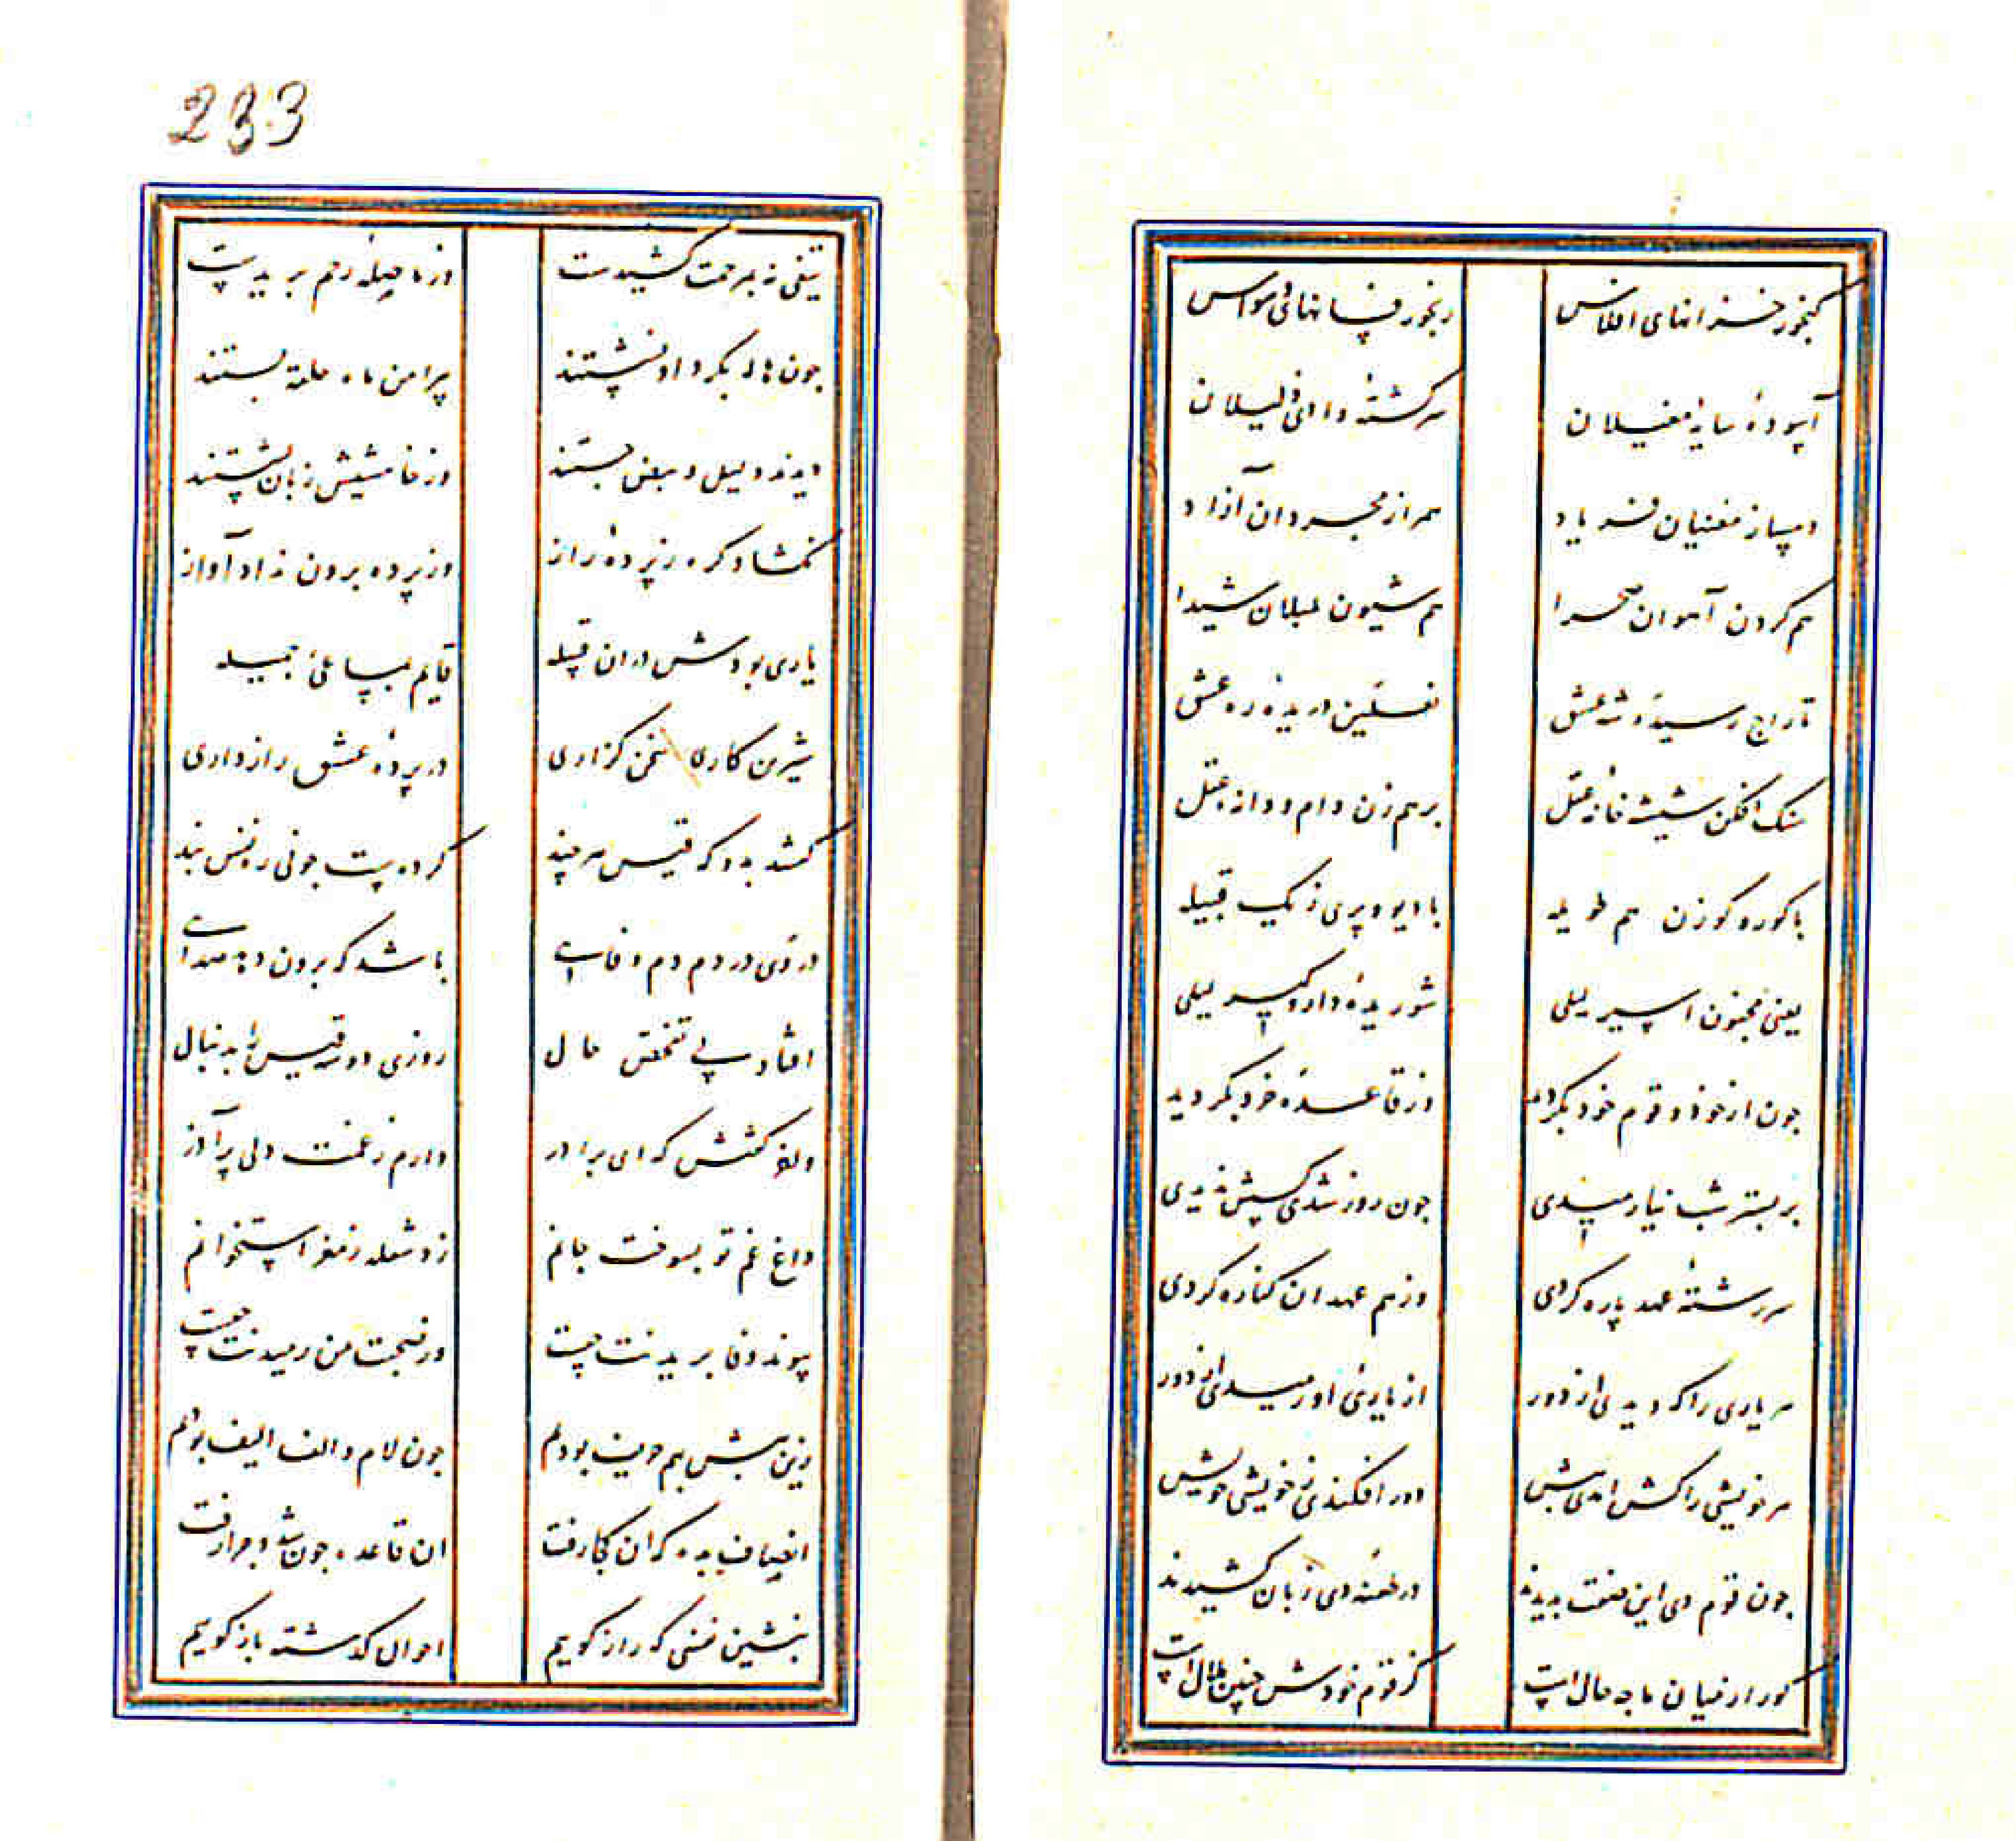 گنجور خزانهای افلاس رنجور فسانهای وسواس
آسودهٔ سایهٔ مغیلان سرگشتهٔ وادی ذلیلان
دمساز مغنیان فریاد همراز مجردان آزاد
هم گردن آهوان صحرا هم شیون بلبلان شیدا
تاراج رسیدهٔ شه عشق نعلین دریدهٔ ره عشق
سنک افکن شیشه خانهٔ عقل برهم زن دام و دانهٔ عقل
با کور و کوزن هم طویله با دیو و پری ز یک قبیله
یعنی مجنون اسیر لیلی شوریدهٔ دار و کیر لیلی
جون از خود و قوم خود بکردید وز قاعدهٔ خرد بکردید
بر بستر شب نیارمیدی جون روز شدی کسش ندیدی
سررشتهٔ عهد پاره کردی وز هم عهدان کناره کردی
هر یاری را که دیدی از دور از یاری او رمیدی از دور
هر خویشی را کش امدی پیش دور افکندی ز خویشی خویش
جون قوم وی این صفت بدیدند در طعنهٔ وی زبان کشیدند
کورا ز میان ما جه حال است کز قوم خودش جنین ملال است
233
تیغی ز پی مرحمت کشیدست وز ما صلهٔ رحم بریدست
جون هاله بکرد او نشستند پیرامن ماه حلقه بستند
دیدند دلیل و معنی جستند وز خامشیش زبان بستند
نکشاد کره ز پردهٔ راز وز پرده برون نداد آواز
یاری بودش دران قبیله قایم بمساعی جمیله
شیرین کاری سخن کزاری در پردهٔ عشق رازداری
کفتند بدو که قیس هر چند کرده ست جونی ره نفس بند
در وی در دم دم وفایی باشد که برون دهد صدایی
افتاد پی تفحص حال روزی دو سه قیس را بدنبال
وانکه کفتش که ای برادر دارم ز غمت دلی پر آذر
داغ غم تو بسوخت جانم زد شعله ز مغز استخوانم
پیوند وفا بریدنت چیست وز صحبت من رمیدنت چیست
زین پیش بهم حریف بودیم جون لام و الف الیف بودیم
انصاف بده که ان کجا رفت ان قاعده جون شد و جرا رفت
بنشین نفسی که راز کوییم احوال کذشته باز کوییم